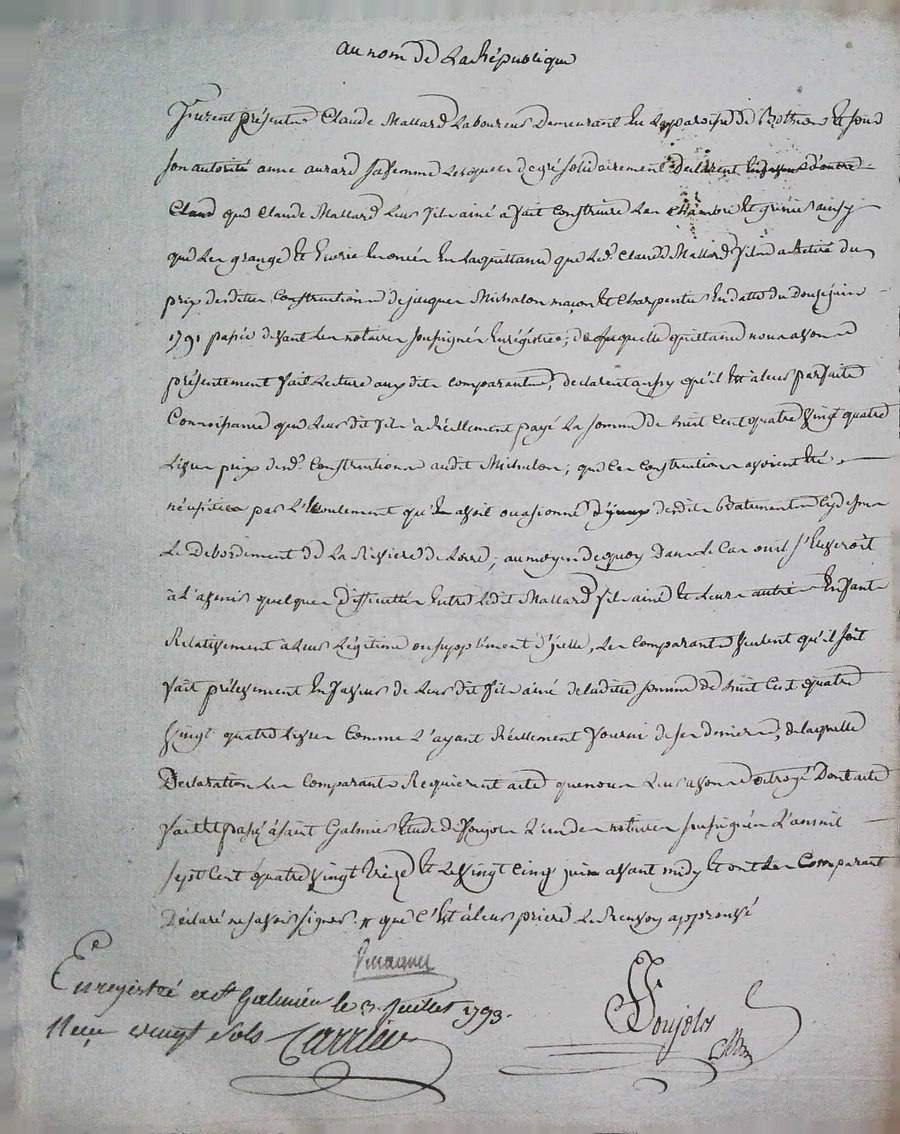 au nom de La République
Furent présents Claude Mallard Laboureur demeurant en La paroisse de Bothéon et sous
son autorité anne aurard sa femme Lesquels de gré solidairement Declarent
Claud que Claude Mallard Leur fils ainé a fait construire Les chambre et grenier ainsy
que Les grange et Ecurie Enoncés En La quittance que Led. Claude Mallard fils a Retiré du
prix desdites Constructions de jacques Michalon maçon et charpentier En datte du douze juin
1791 passée devant Les notaires soussignés Enregistrée, de laquelle quittance nous avons
présentement fait Lecture auxdits comparants, declarent aussy qu'il Est à leur parfaite
Connoissance que Leur dit fils a Réellement payé La somme de huit Cent quatre vingt quatre
Livres prix desd. Constructions audit Michalon; que Ces Constructions avoient été
nécessitées par L'Ecoulement qu'En avoit ouasionné desdits Batiments
Le Debordement de La Riviere de Loire; au moyen de quoy Dans Le Cas ou il s'Eleveroit
à L'avenir quelques difficultés Entre Ledit Mallard fils ainé et Leurs autres Enfants
Relativement à Leur Légitime ou supplément d'ycelle, Les comparants veulent qu'il soit
fait prélevement En faveur de Leur dit fils ainé de laditte somme de huit Cent quatre
Vingt quatre Livres Comme L'ayant Réellement fourni de ses deniers, de laquelle
Declaration Les Comparants Requierent acte que nous Leur avons octroyé Dont acte
fait et passé à saint Galmier Etude de Poujol L'un des notaires soussignés L'an mil
sept Cent quatre vingt treize et Le vingt Cinq juin avant midy et ont Les Comparants
Déclaré ne savoir signer. que C'Est à leur priere Le Renvoy approuvé
Enregistré a St Galmier le 3 Juillet 1793.
Reçu vingt sols Carrier